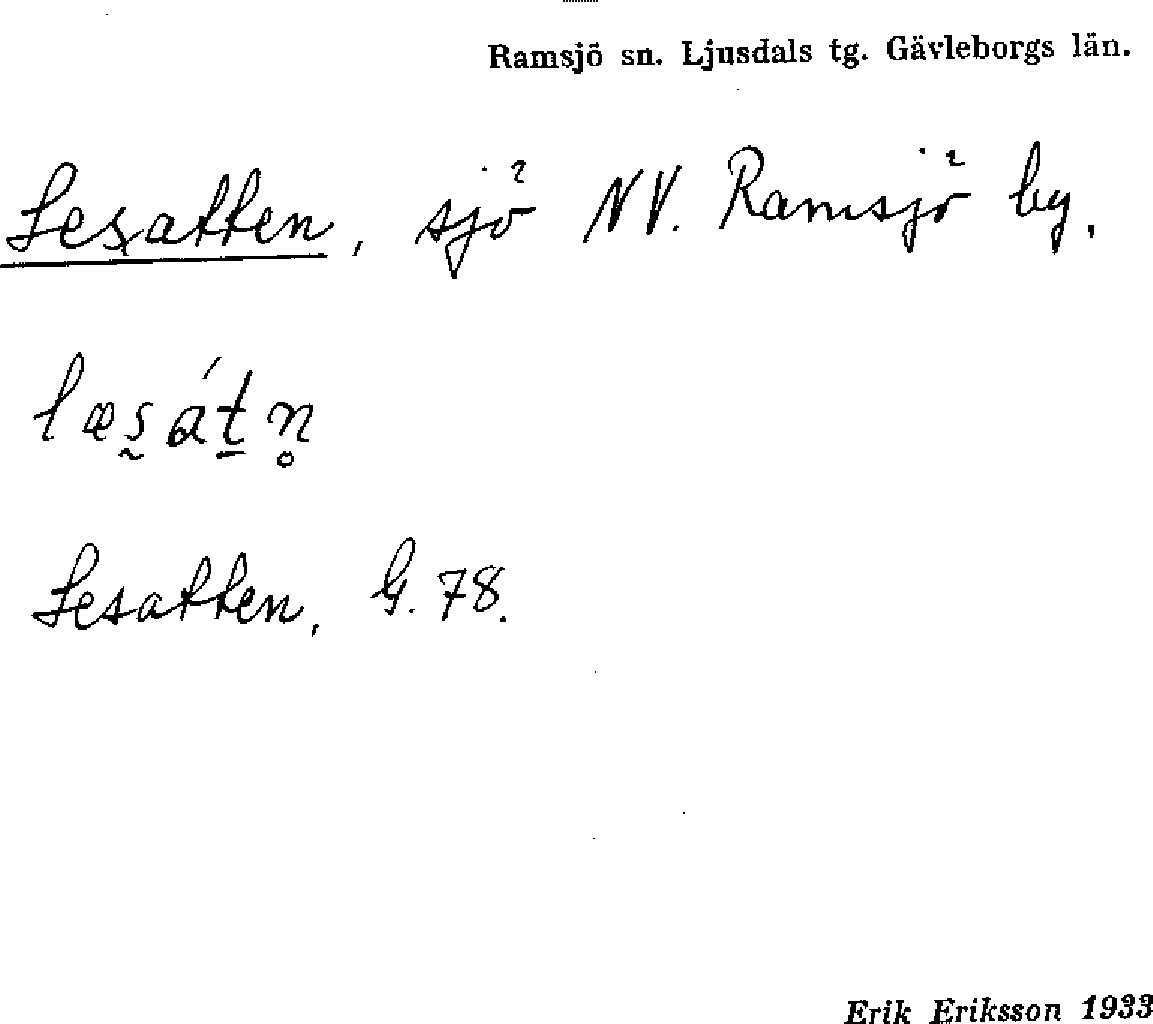 Ramsjö sn. Ljusdals tg. Gävleborgs län.
Lesatten, sjö NV. Ramsjö by.
læs̰át̲n̥
Lesatten, G. 78.
Erik Eriksson 1933